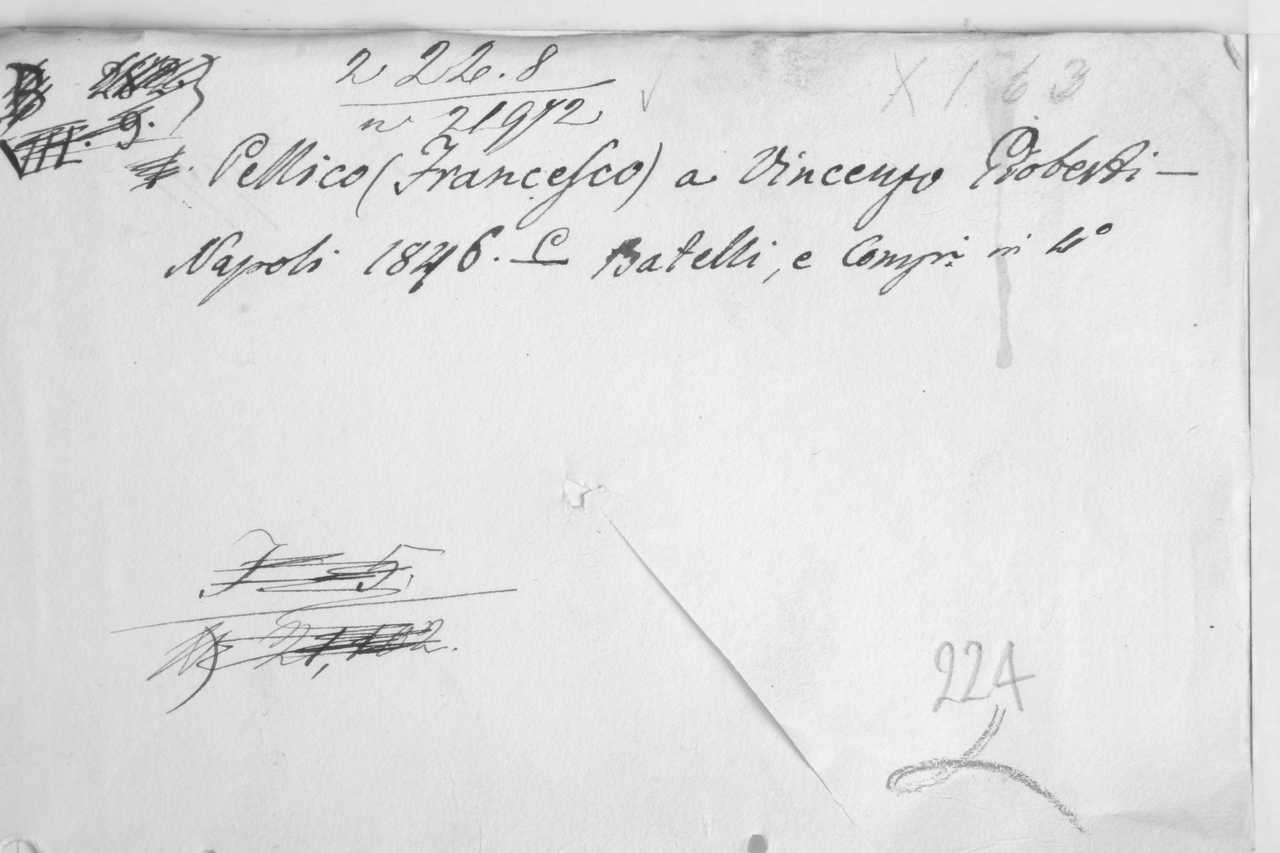 2 22.8
n 21972
X 163
Pellico (Francesco) a Vincenzo Gioberti —
Napoli 1846. — Batelli, e Comp. in 4°
21,102.
224